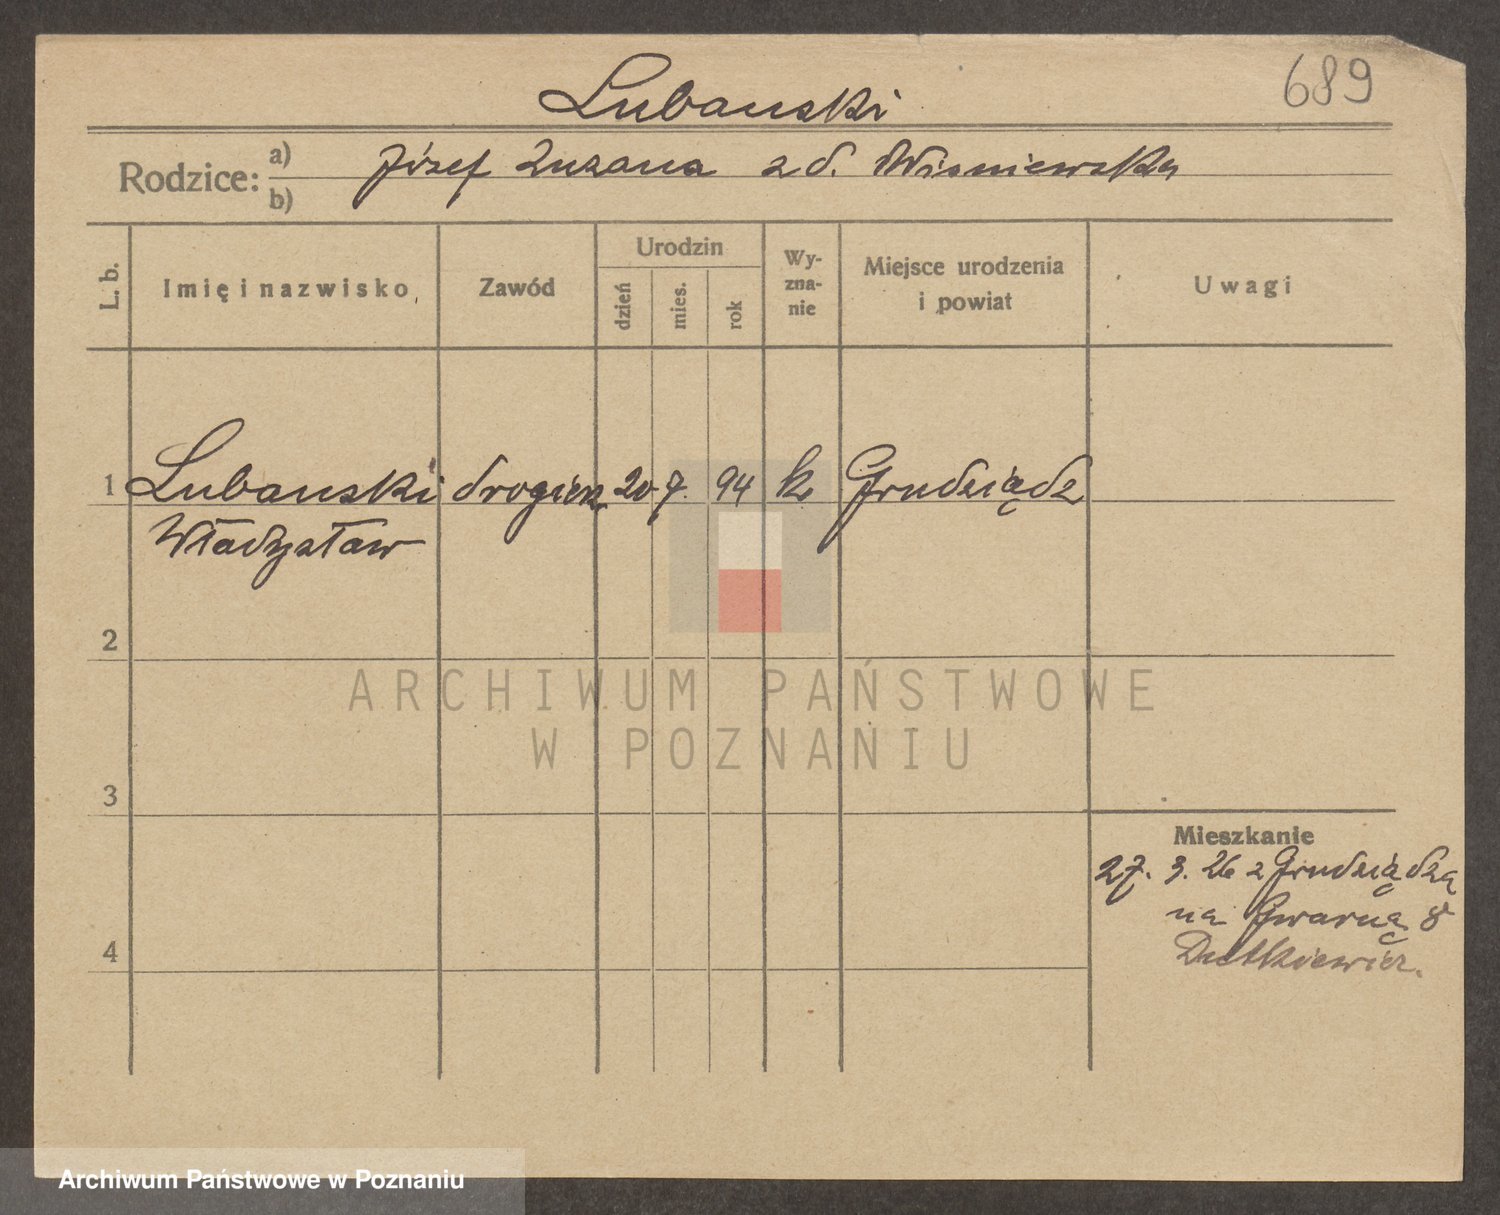 689
Lubanski
Rodzice: a) Józef Zuzana z d. Wiśniewska
b)
L. b.
Imię i nazwisko
Zawód
Urodzin
dzień
mies.
rok
Wy-
zna-
nie
Miejsce urodzenia
i powiat
Uwagi
1 Lubanski drogista 20 7. 94 k Grudziądz
Władysław
2
3
4
Mieszkanie
27. 3. 26 z Grudziądza
na Gwarną 8
Dutkiewicz.
ARCHIWUM PAŃSTWOWE
W POZNANIU
Archiwum Państwowe w Poznaniu